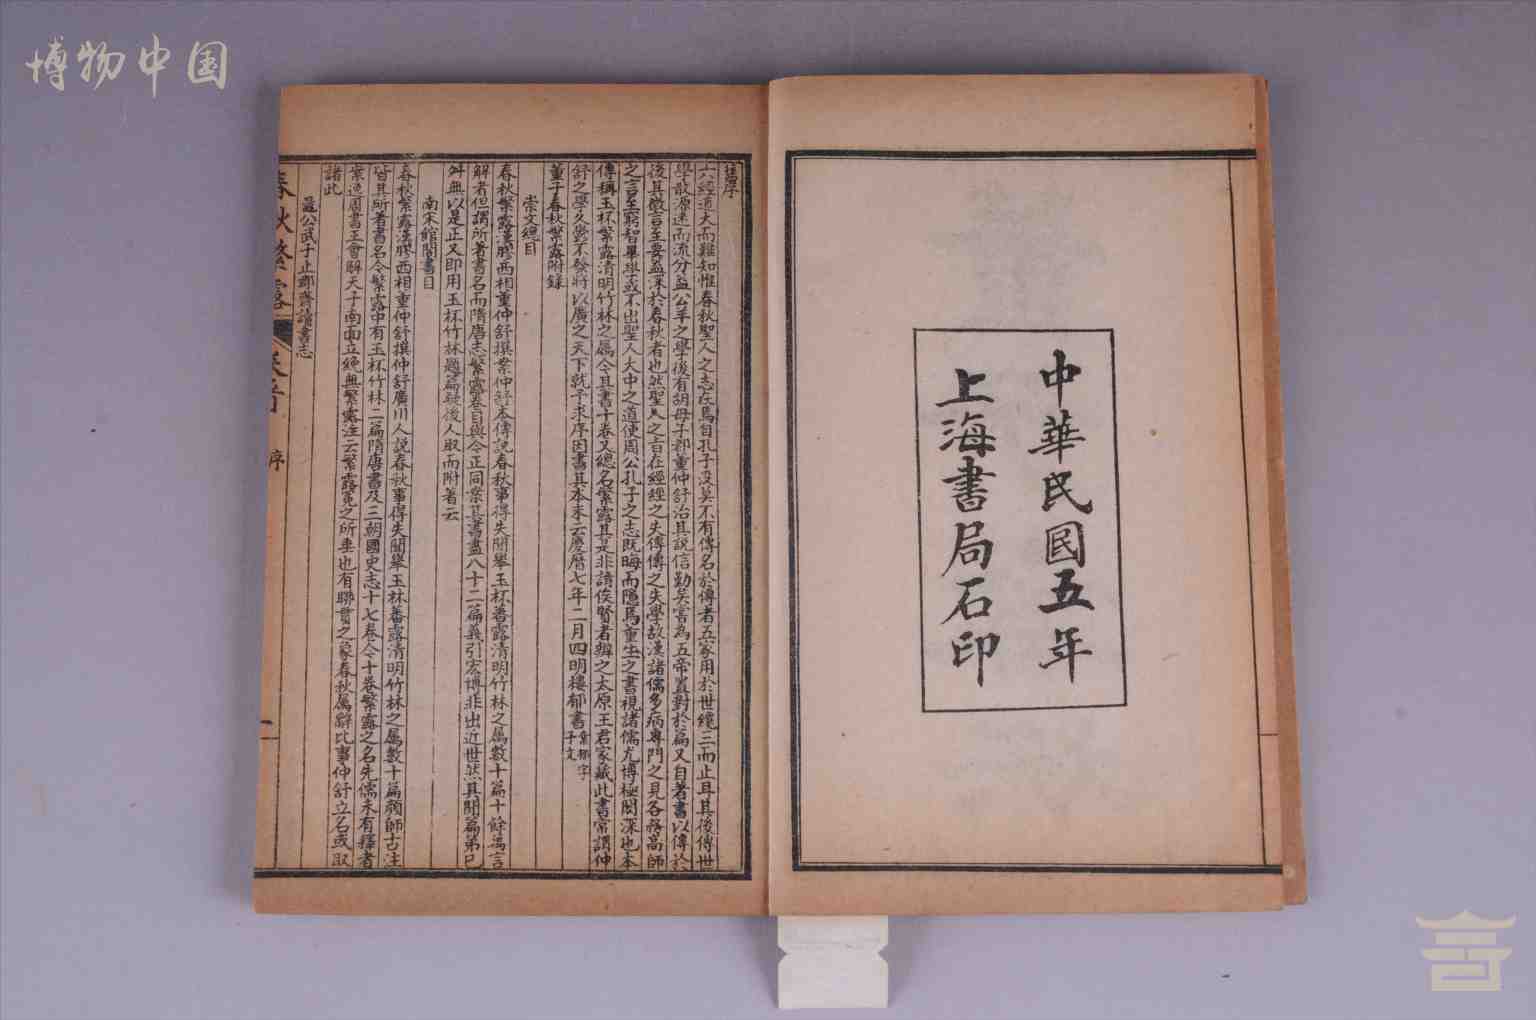 博物中国
中華民國五年
上海書局石印
六經道大而難知惟春秋聖人之志在焉自孔子沒莫不有傳名於傳者五家用於世纔三而止耳其後傳世
學散源迷而流分蓋公羊之學後有胡母子都董仲舒治其說信勤矣嘗為五帝置對於篇又自著書以傳於
後其微言至要蓋深於春秋者也然聖人之旨在經經之失傳傳之失學故漢諸儒多病專門之見各務高師
之言至窮智畢學或不出聖人大中之道使周公孔子之志既晦而隱焉董生之書視諸儒尤博極閎深也本
傳稱玉杯繁露清明竹林之屬今其書十卷又總名繁露其是非請俟賢者辨之太原王君家藏此書常謂仲
舒之學久鬱不發將以廣之天下就予求序因書其本末云慶曆七年二月四明樓郁書
董子春秋繁露附錄
崇文總目
春秋繁露漢膠西相董仲舒撰案仲舒本傳說春秋事得失聞舉玉杯蕃露清明竹林之屬數十篇十餘萬言
解者但謂所著書名而隋唐志繁露卷目與今正同案其書盡八十二篇義引宏博非出近世然其間篇第已
舛無以是正又即用玉杯竹林題篇疑後人取而附著云
南宋館閣書目
春秋繁露漢膠西相董仲舒撰仲舒廣川人說春秋事得失聞舉玉杯蕃露清明竹林之屬數十篇顏師古注
皆其所著書名今繁露中有玉杯竹林二篇隋唐書及三朝國史志十七卷今十卷繁露之名先儒未有釋者
案逸周書王會解天子南面立絻無繁露注云繁露冕之所垂也有聯貫之象春秋屬辭比事仲舒立名或取
諸此
晁公武子止郡齋讀書志
春秋繁露
卷首
序